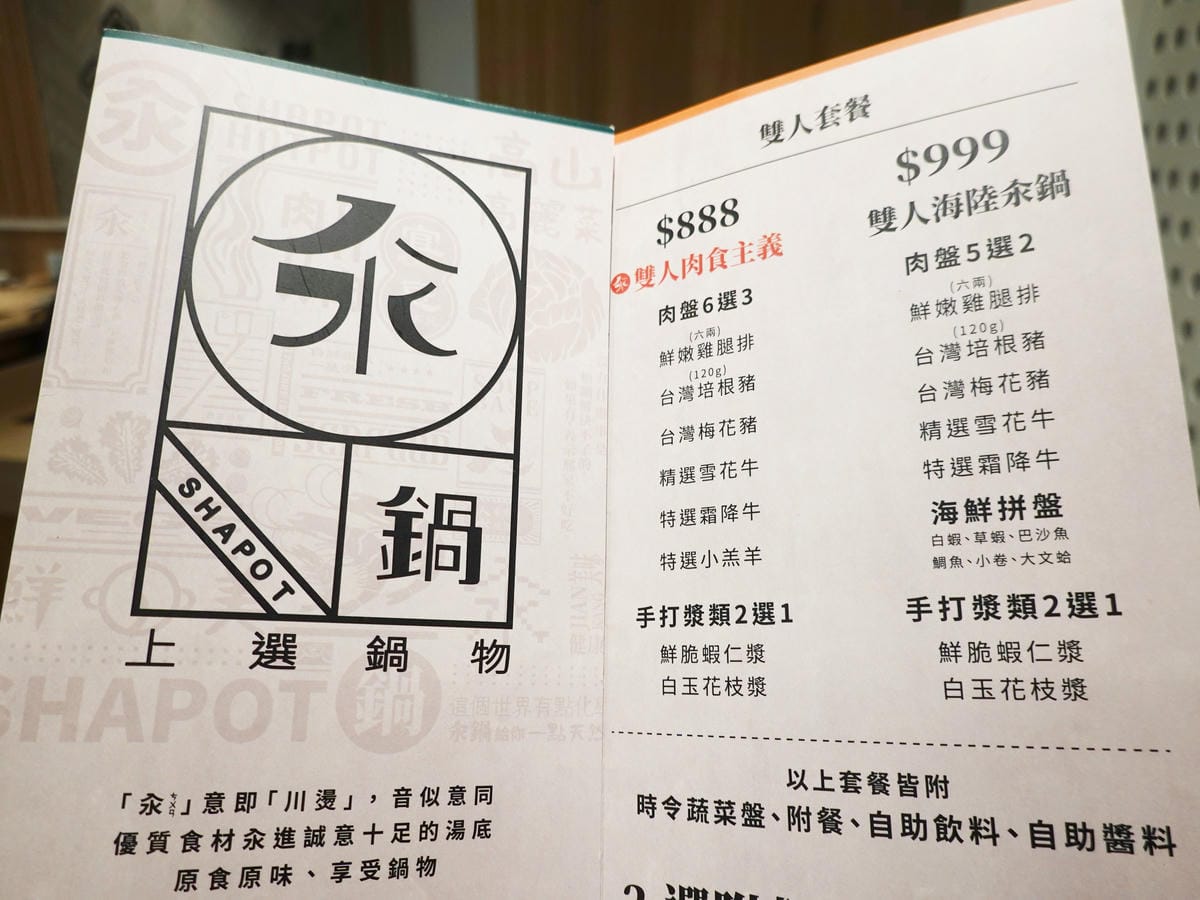 汆
SHAPOT
鍋
上選鍋物
SHAPOT 鍋
這個世界有點化
汆鍋給你一點天然
「汆ㄘㄨㄢ」意即「川燙」，音似意同
優質食材汆進誠意十足的湯底
原食原味、享受鍋物
雙人套餐
$888
汆 雙人肉食主義
肉盤6選3
(六兩)
鮮嫩雞腿排
(120g)
台灣培根豬
台灣梅花豬
精選雪花牛
特選霜降牛
特選小羔羊
手打漿類2選1
鮮脆蝦仁漿
白玉花枝漿
$999
雙人海陸汆鍋
肉盤5選2
(六兩)
鮮嫩雞腿排
(120g)
台灣培根豬
台灣梅花豬
精選雪花牛
特選霜降牛
海鮮拼盤
白蝦、草蝦、巴沙魚
鯛魚、小卷、大文蛤
手打漿類2選1
鮮脆蝦仁漿
白玉花枝漿
以上套餐皆附
時令蔬菜盤、附餐、自助飲料、自助醬料